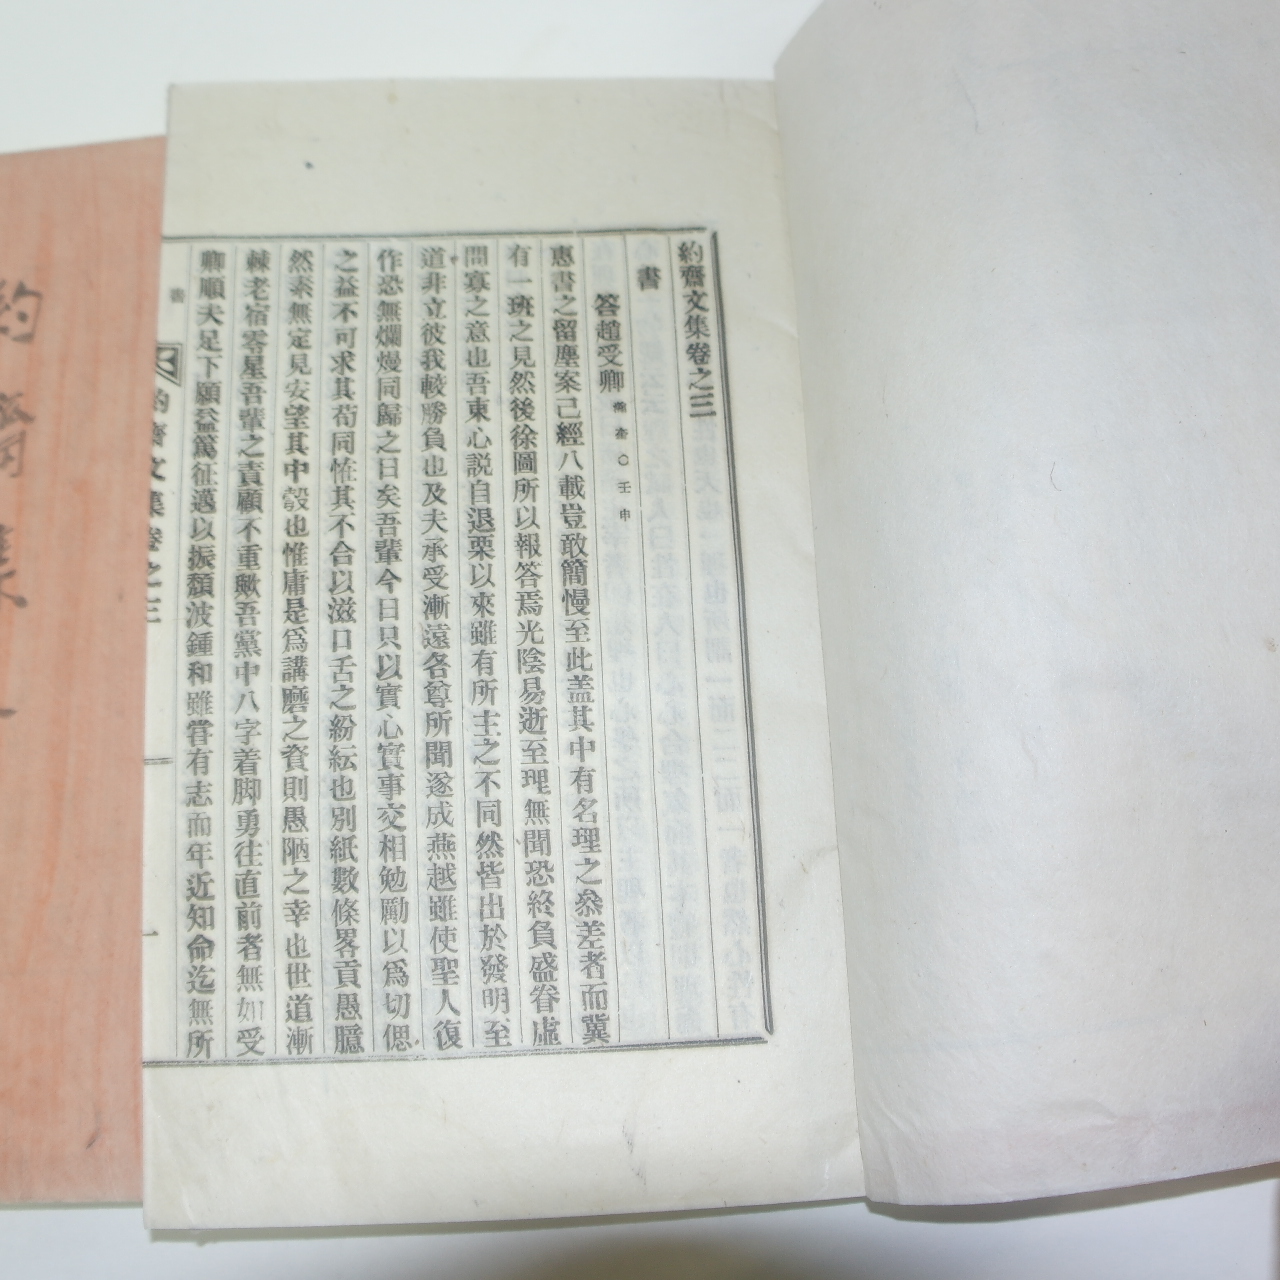 約齋文集卷之三
書
答趙受卿
惠書之留塵案已經八載豈敢簡慢至此盖其中有名理之叅差者而冀
有一班之見然後徐圖所以報答焉光陰易逝至理無聞恐終負盛眷虛
問寡之意也吾東心説自退栗以來雖有所主之不同然皆出於發明至
道非立彼我較勝負也及夫承受漸遠各尊所聞遂成燕越雖使聖人復
作恐無爛熳同歸之日矣吾輩今日只以實心實事交相勉勵以爲切偲
之益不可求其苟同恠其不合以滋口舌之紛紜也別紙數條畧貢愚臆
然素無定見安望其中彀也惟庸是爲講磨之資則愚陋之幸也世道漸
棘老宿零星吾輩之責顧不重歟吾黨中八字着脚勇往直前者無如受
卿順夫足下願益篤征邁以振頹波鍾和雖甞有志而年近知命迄無所
書
約齋文集卷之三
一
約齋集